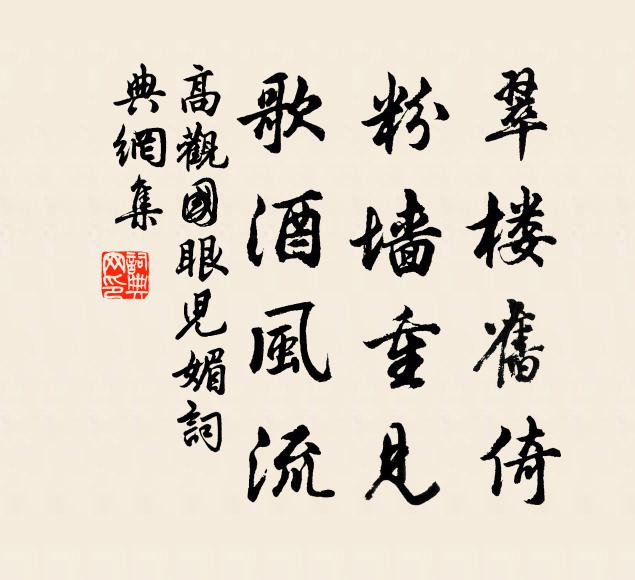 翠楼舊倚
粉墙重見
歌酒風流
高觀國眼兒媚詞
典網集
詞典網印